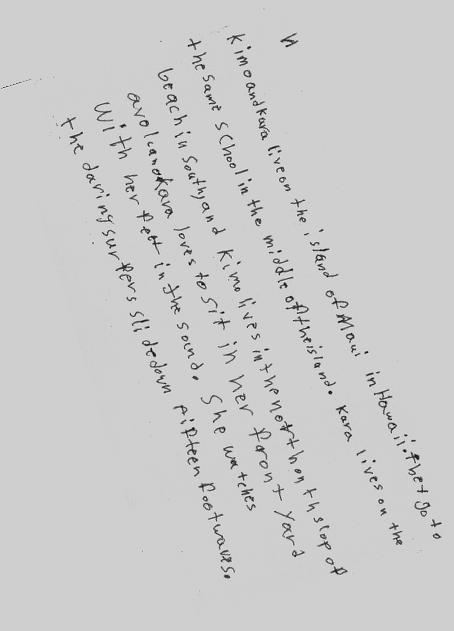 H
Kimo and Kara live on the island of Maui in Hawaii. thet go to
the same school in the middle of the island. Kara lives on the
beach in South, and Kimo lives in the notth on th slop of
a volcano Kara loves to sit in her front yard
with her feet in the sound. She watches
the daring surfers slide down fifteen foot waves.